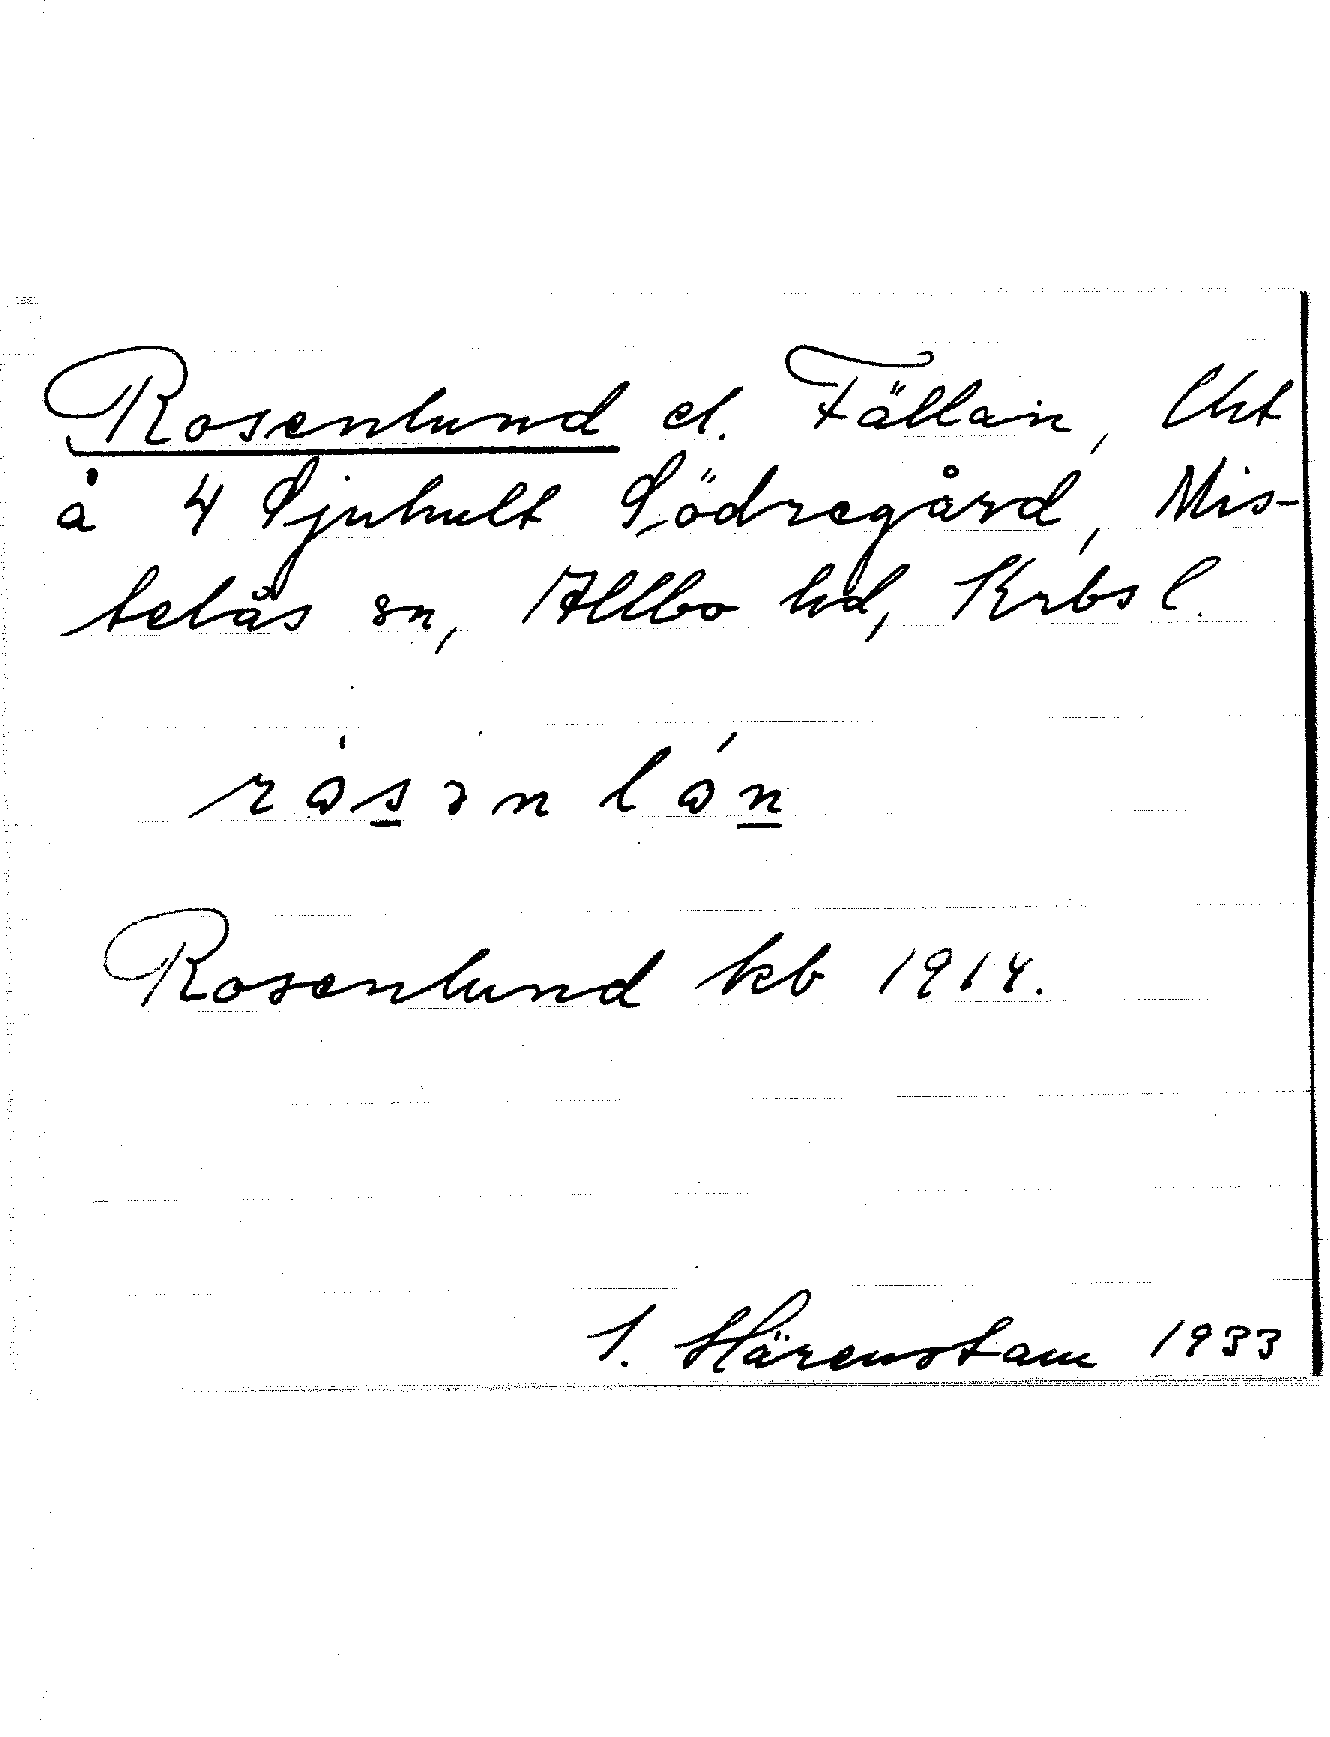 Rosenlund el. Fällan, lht
å 4 Sjuhult Södregård, Mis-
telås sn, Allbo hd, Krbs l.
rosənlón
Rosenlund kb 1914.
S. Härenstam 1933